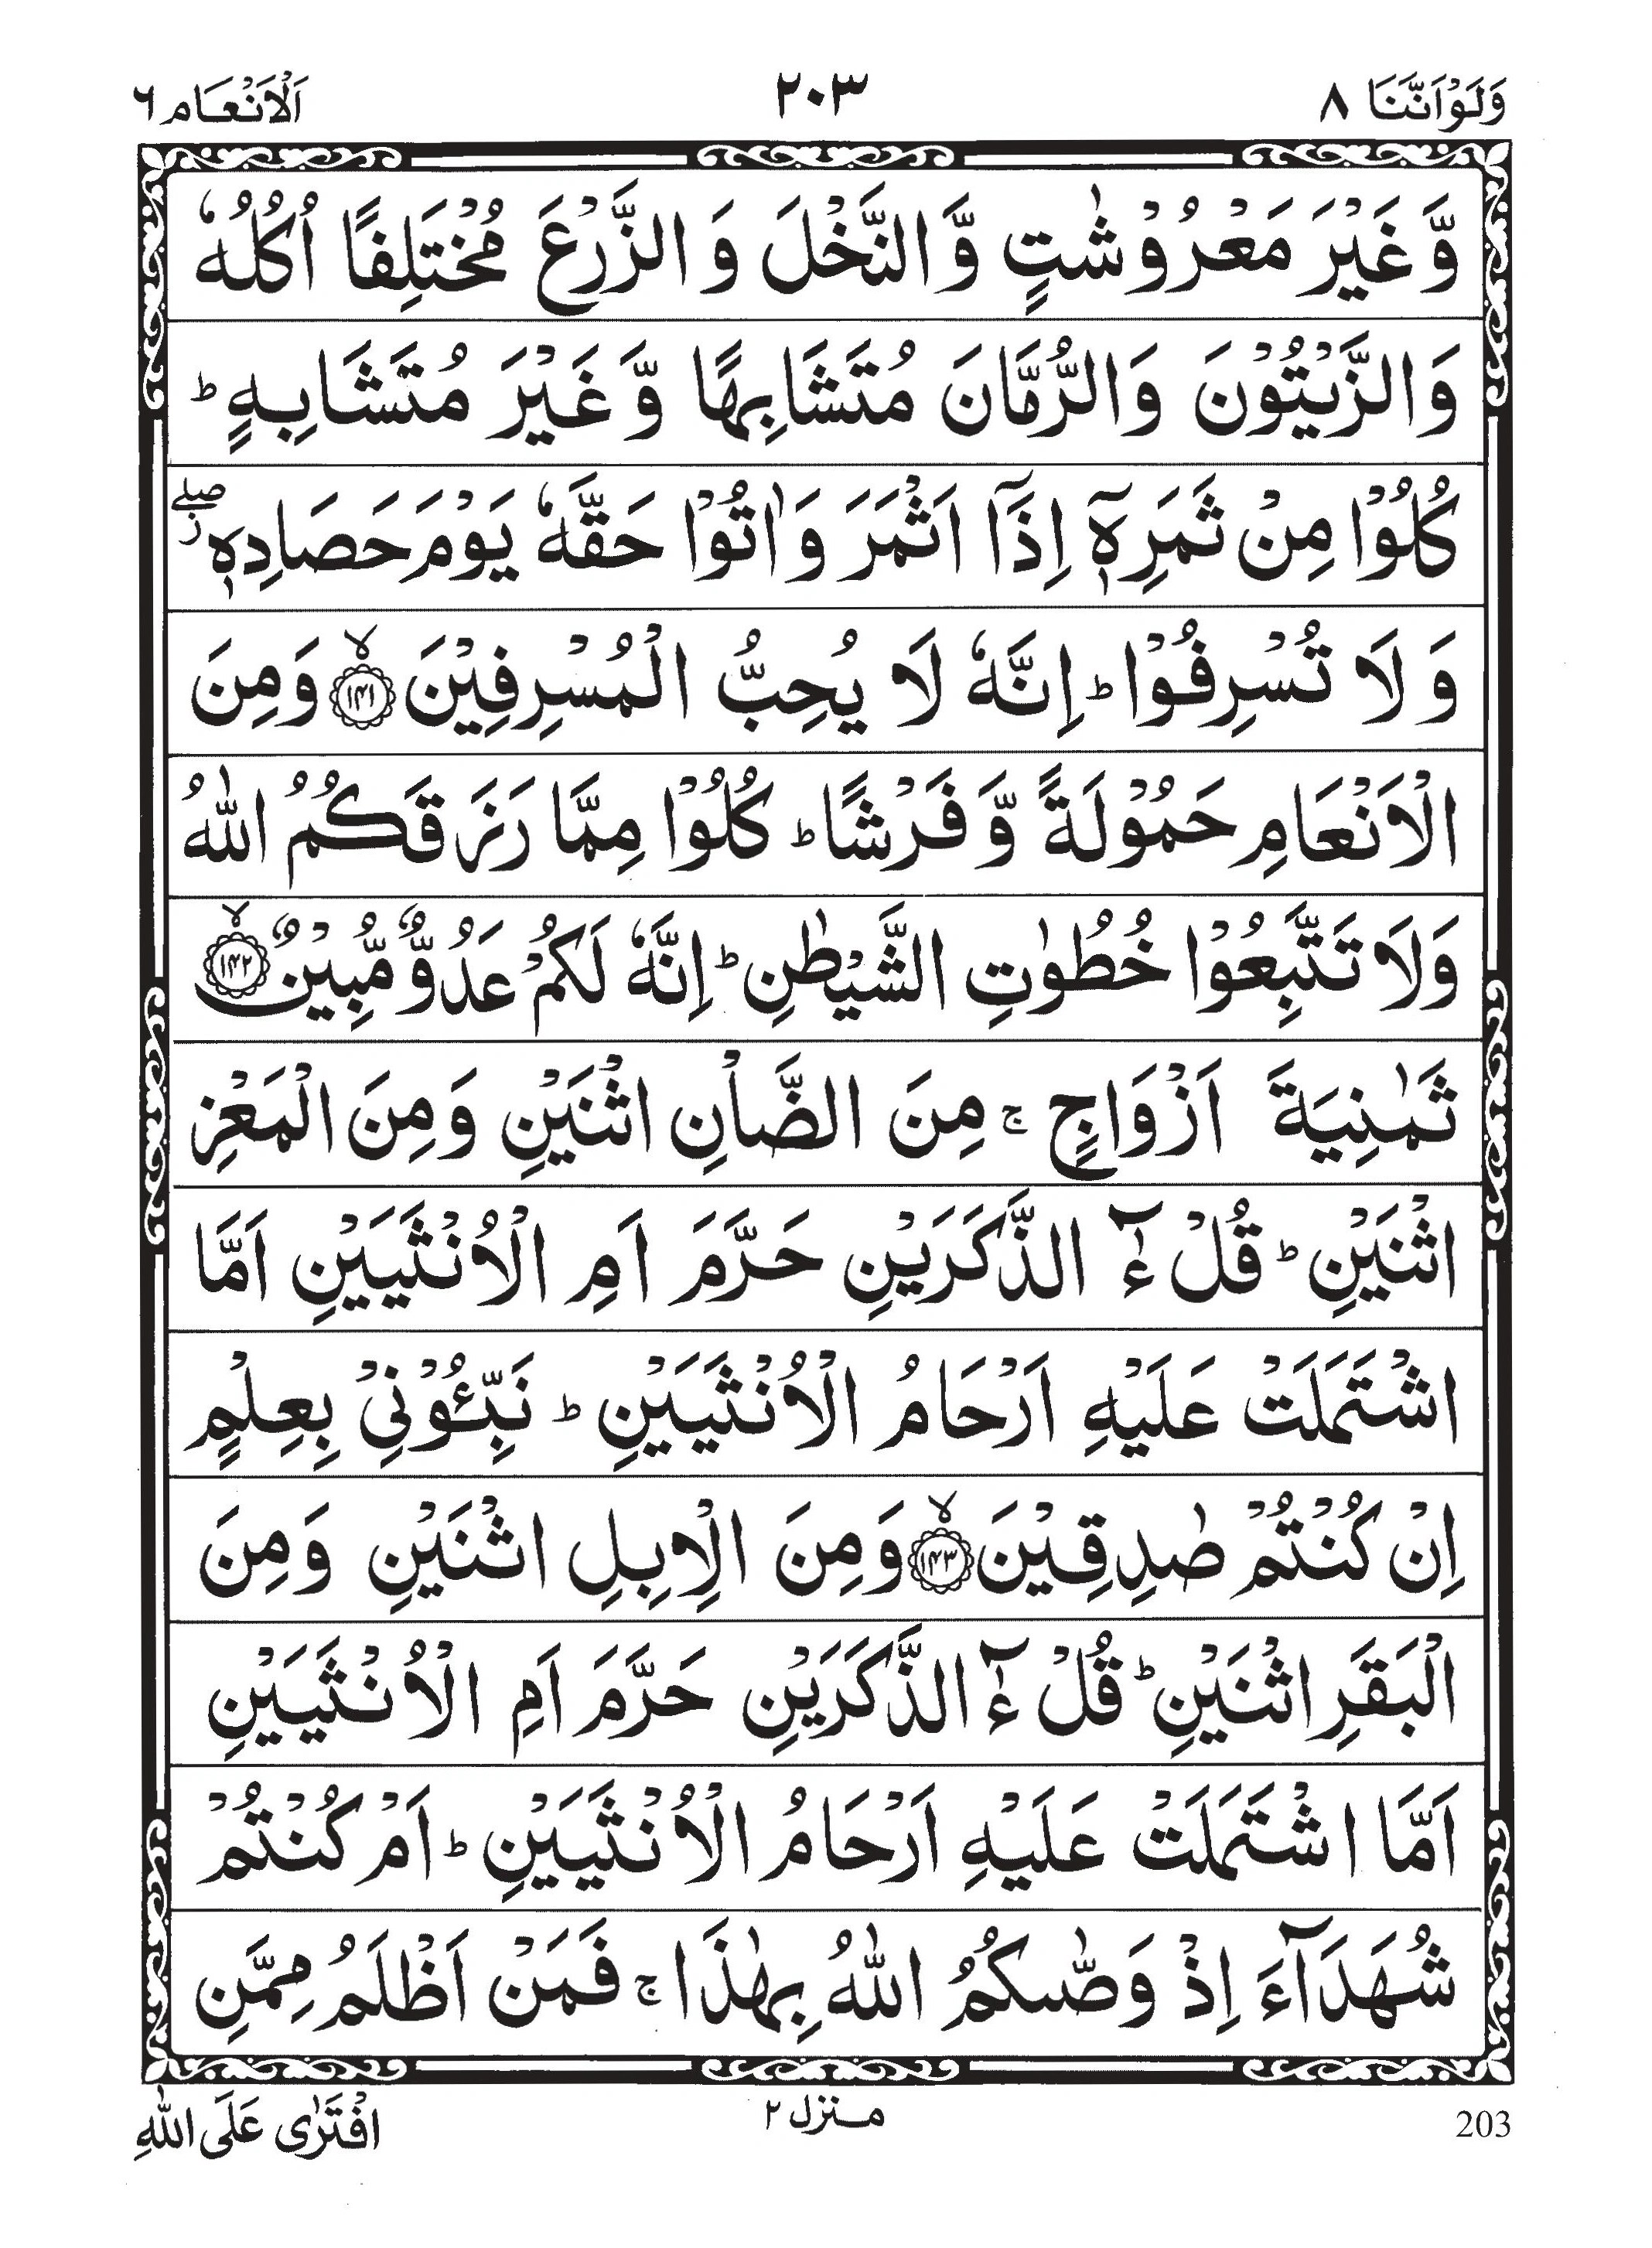 وَلَوْاَنَّنَا ٨ ٢٠٣ اَلْاَنْعَام ٦
وَّ غَيْرَ مَعْرُوْشٰتٍ وَّالنَّخْلَ وَ الزَّرْعَ مُخْتَلِفًا اُكُلُهٗ
وَالزَّيْتُوْنَ وَالرُّمَّانَ مُتَشَابِهًا وَّ غَيْرَ مُتَشَابِهٍ ؕ
كُلُوْا مِنْ ثَمَرِهٖۤ اِذَاۤ اَثْمَرَ وَ اٰتُوْا حَقَّهٗ يَوْمَ حَصَادِهٖ ۖ ز
وَ لَا تُسْرِفُوْا ؕ اِنَّهٗ لَا يُحِبُّ الْمُسْرِفِيْنَ ۙ﴿۱۴۱﴾ وَ مِنَ
الْاَنْعَامِ حَمُوْلَةً وَّ فَرْشًا ؕ كُلُوْا مِمَّا رَزَقَكُمُ اللّٰهُ
وَلَا تَتَّبِعُوْا خُطُوٰتِ الشَّيْطٰنِ ؕ اِنَّهٗ لَكُمْ عَدُوٌّ مُّبِيْنٌ ۙ﴿۱۴۲﴾
ثَمٰنِيَةَ اَزْوَاجٍ ۚ مِنَ الضَّاْنِ اثْنَيْنِ وَ مِنَ الْمَعْزِ
اثْنَيْنِ ؕ قُلْ ءٰٓالذَّكَرَيْنِ حَرَّمَ اَمِ الْاُنْثَيَيْنِ اَمَّا
اشْتَمَلَتْ عَلَيْهِ اَرْحَامُ الْاُنْثَيَيْنِ ؕ نَبِّـُٔوْنِيْ بِعِلْمٍ
اِنْ كُنْتُمْ صٰدِقِيْنَ ۙ﴿۱۴۳﴾ وَ مِنَ الْاِبِلِ اثْنَيْنِ وَ مِنَ
الْبَقَرِ اثْنَيْنِ ؕ قُلْ ءٰٓالذَّكَرَيْنِ حَرَّمَ اَمِ الْاُنْثَيَيْنِ
اَمَّا اشْتَمَلَتْ عَلَيْهِ اَرْحَامُ الْاُنْثَيَيْنِ ؕ اَمْ كُنْتُمْ
شُهَدَآءَ اِذْ وَصّٰىكُمُ اللّٰهُ بِهٰذَا ۚ فَمَنْ اَظْلَمُ مِمَّنِ
203 مـنزل ٢ افْتَرٰى عَلَى اللّٰهِ